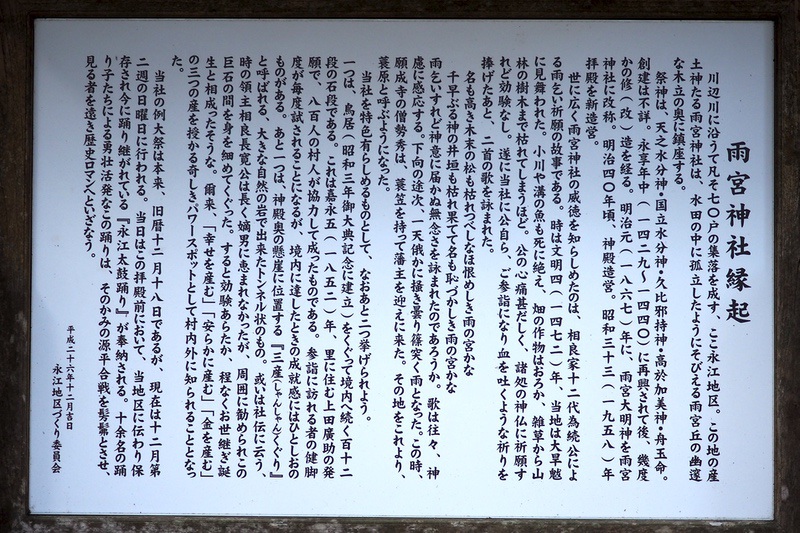 雨宮神社縁起
川辺川に沿うて凡そ七〇戸の集落を成す、ここ永江地区。この地の産
土神たる雨宮神社は、水田の中に孤立したようにそびえる雨宮丘の幽邃
な木立の奥に鎮座する。
祭神は、天之水分神・国立水分神・久比邪持神・高於加美神・舟玉命。
創建は不詳。永享年中（一四二九〜一四四〇）に再興されて後、幾度
かの修（改）造を経る。明治元（一八六七）年に、雨宮大明神を雨宮
神社に改称。明治四〇年頃、神殿造営。昭和三十三（一九五八）年
拝殿を新造営。
世に広く雨宮神社の威徳を知らしめたのは、相良家十二代為続公によ
る雨乞い祈願の故事である。時は文明四（一四七二）年、当地は大旱魃
に見舞われた。小川や溝の魚も死に絶え、畑の作物はおろか、雑草から山
林の樹木まで枯れてしまうほど。公の心痛甚だしく、諸処の神仏に祈願す
れど効験なし。遂に当社に公自ら、ご参詣になり血を吐くような祈りを
捧げたあと、二首の歌を詠まれた。
名も高き木末の松も枯れつべしなほ恨めしき雨の宮かな
千早ぶる神の井垣も枯れ果てて名も恥づかしき雨の宮かな
雨乞いすれど神意に届かぬ無念さを詠まれたのであろうか。歌は往々、神
慮に感応する。下向の途次、一天俄かに掻き曇り篠突く雨となった。この時、
願成寺の僧勢秀は、蓑笠を持って藩主を迎えに来た。その地をこれより、
蓑原と呼ぶようになった。
当社を特色有らしめるものとして、なおあと二つ挙げられよう。
一つは、鳥居（昭和三年御大典記念に建立）をくぐって境内へ続く百十二
段の石段である。これは嘉永五（一八五二）年、里に住む上田廣助の発
願で、八百人の村人が協力して成ったものである。参詣に訪れる者の健脚
度が毎度試されることになるが、境内に達したときの成就感にはひとしおの
ものがある。あと一つは、神殿奥の懸崖に位置する『三産（しゃんしゃん）くぐり』
と呼ばれる、大きな自然の岩で出来たトンネル状のもの。或いは社伝に云う、
時の領主相良長寛公は長く嫡男に恵まれなかったが、周囲に勧められこの
巨石の間を身を細めてくぐった。すると効験あらたか、程なくお世継ぎ誕
生と相成ったそうな。爾来、「幸せを産む」「安らかに産む」「金を産む」
の三つの産を授かる奇しきパワースポットとして村内外に知られることとなっ
た。
当社の例大祭は本来、旧暦十二月十八日であるが、現在は十二月第
二週の日曜日に行われる。当日はこの拝殿前において、当地区に伝わり保
存され今に踊り継がれている『永江太鼓踊り』が奉納される。十余名の踊
り子たちによる勇壮活発なこの踊りは、そのかみの源平合戦を髣髴とさせ、
見る者を遠き歴史ロマンへといざなう。
平成二十六年十二月吉日
永江地区づくり委員会